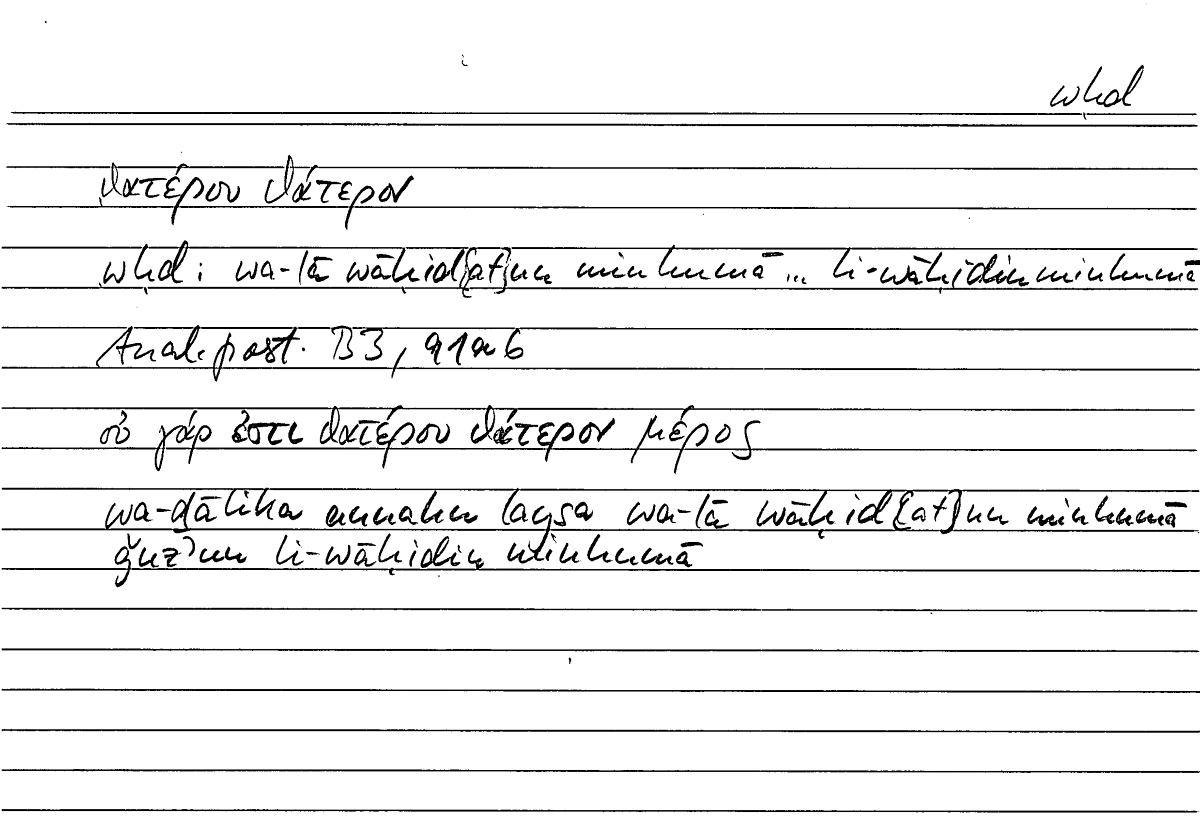 wḥd
θατέρου θάτερον
wḥd: wa-lā wāḥid{at}un minhumā ... li-wāḥidin minhumā
Anal. post. B3, 91a6
οὐ γάρ ἐστι θατέρου θάτερον μέρος
wa-ḏālika annahu laysa wa-lā wāḥid{at}un minhumā
ǧuzʾun li-wāḥidin minhumā